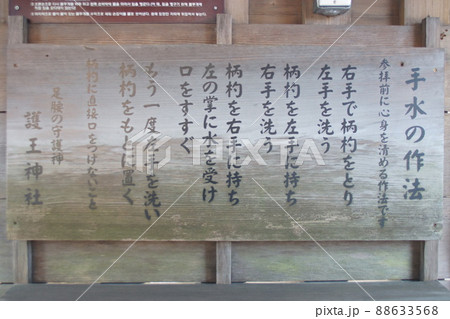 手水の作法
参拝前に心身を清める作法です
右手で柄杓をとり
左手を洗う
柄杓を左手に持ち
右手を洗う
柄杓を右手に持ち
左の掌に水を受け
口をすすぐ
もう一度左手を洗い
柄杓をもとに置く
柄杓に直接口をつけないこと
足腰の守護神
護王神社
88633568